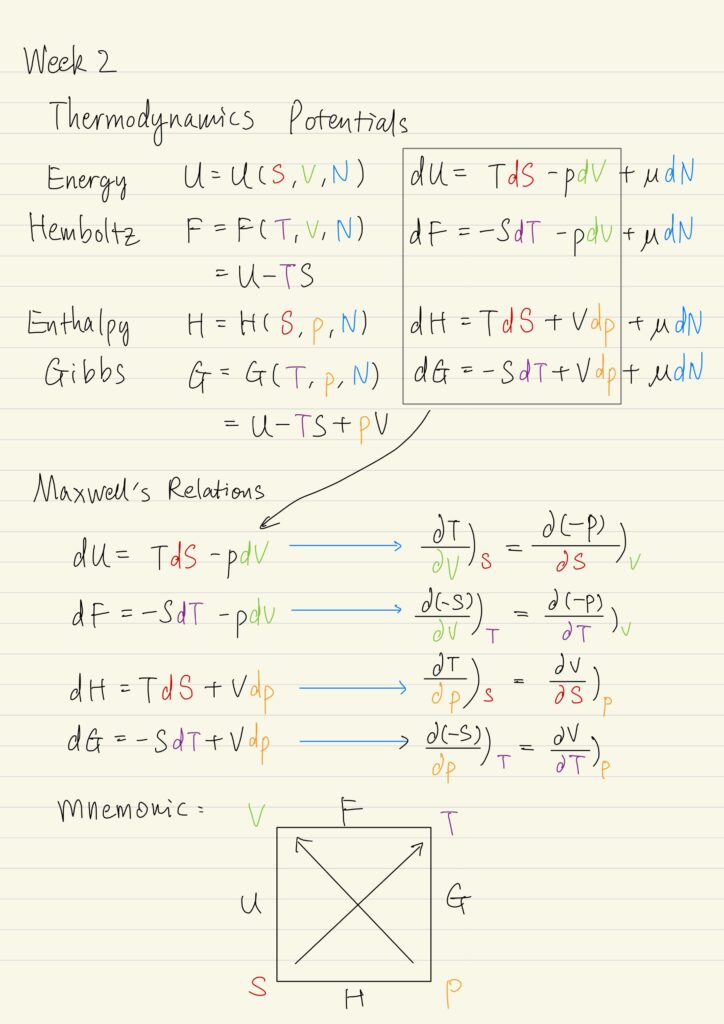 Week 2
Thermodynamics Potentials
Energy U = U(S, V, N) dU = TdS - pdV + μdN
Hemboltz F = F(T, V, N) dF = -SdT - pdV + μdN
= U - TS
Enthalpy H = H(S, p, N) dH = TdS + Vdp + μdN
Gibbs G = G(T, p, N) dG = -SdT + Vdp + μdN
= U - TS + pV
Maxwell's Relations
dU = TdS - pdV → ∂T/∂V)S = ∂(-P)/∂S)V
dF = -SdT - pdV → ∂(-S)/∂V)T = ∂(-P)/∂T)V
dH = TdS + Vdp → ∂T/∂p)S = ∂V/∂S)p
dG = -SdT + Vdp → ∂(-S)/∂p)T = ∂V/∂T)p
Mnemonic: V F T
U G
S H P